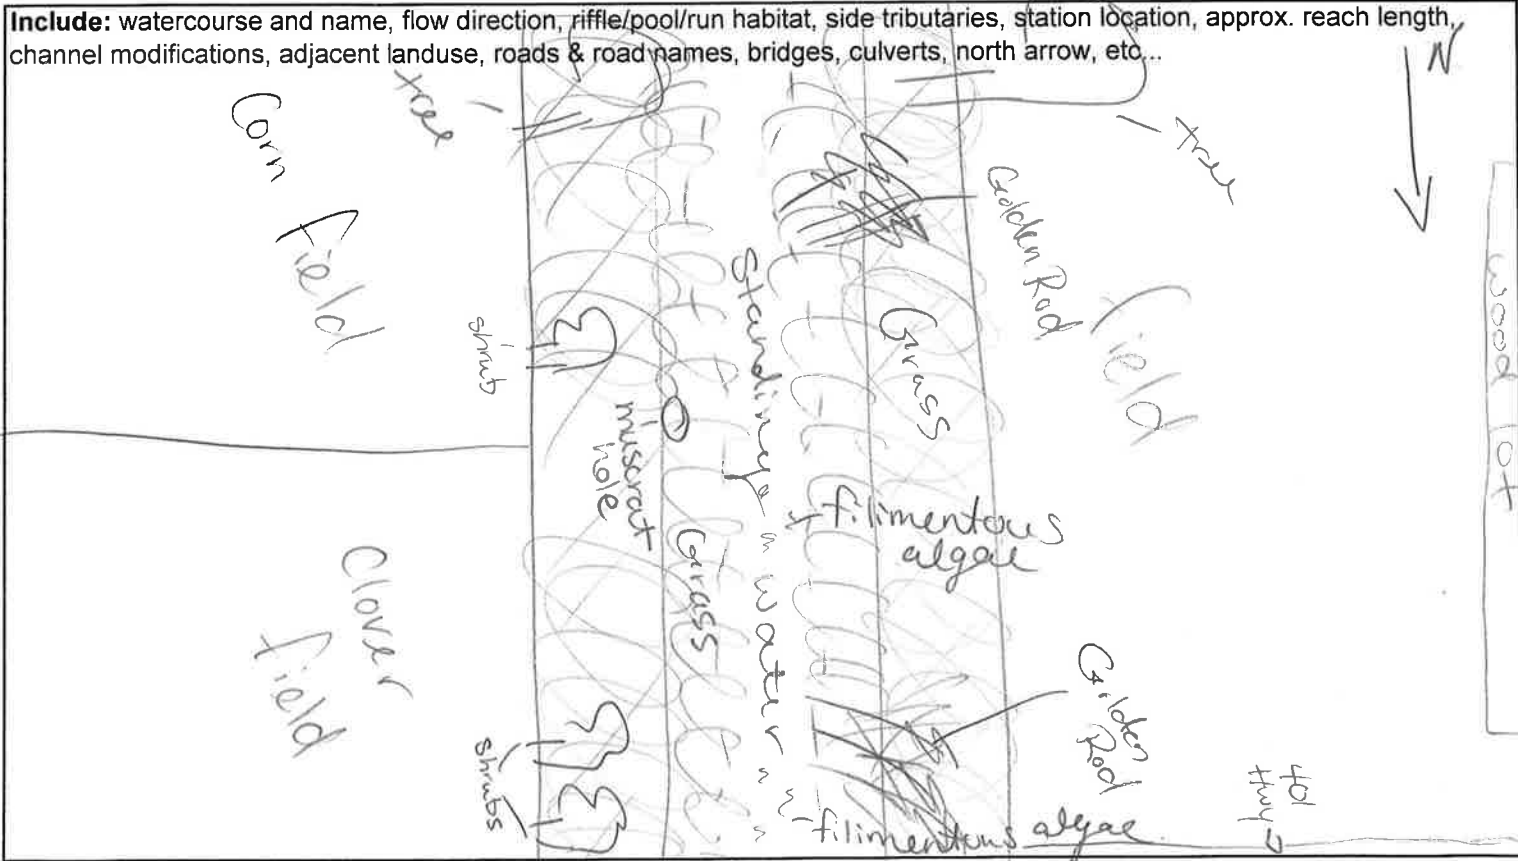 Include: watercourse and name, flow direction, riffle/pool/run habitat, side tributaries, station location, approx. reach length,
channel modifications, adjacent landuse, roads & road names, bridges, culverts, north arrow, etc...
N
tree
Corn
field
tree
Golden Rod
field
wood lot
shrub
Grass
Standing
water
muscrat
hole
filimentous
algae
Grass
Clover
field
Golden
Rod
shrubs
Hwy
401
filimentous algae